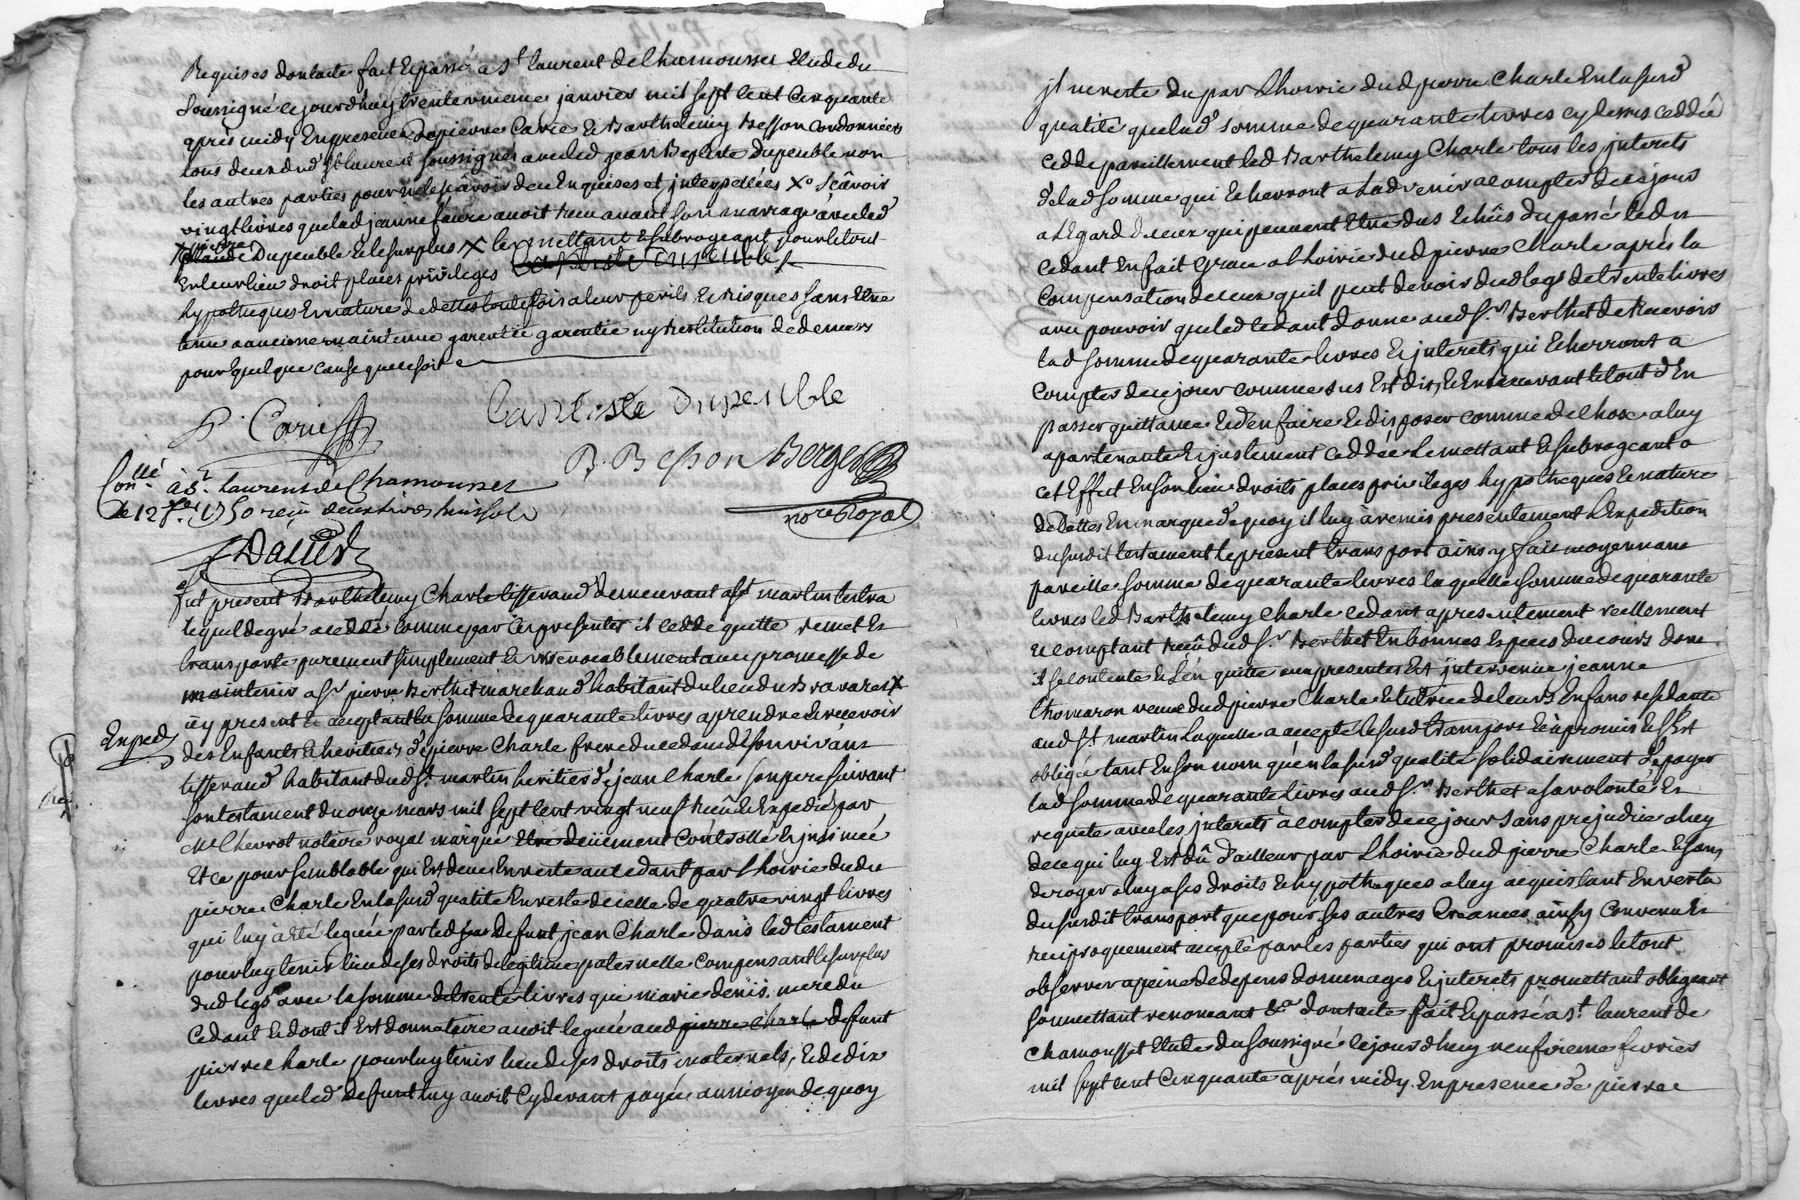 Requises dont acte fait et passé a St laurent de Chamousset Etude du
soussigné ce jourd'huy trente unieme janvier mil sept cent cinquante
après midy En presence de pierre Carie et Barthelemy Besson Cordonnier
tous deux dud St laurent soussignés avec led jean Baptiste Dupeuble non
les autres parties pour ne le sçavoir de ce Enquises et interpellées X° sçavoir
vingt livres que lad jeanne faure avoit reçu avant son mariage avec led
Dupeuble et le surplus X les mettant et subrogeant pour le tout
En leur lieu droit places privileges
hypotheques Et nature de dettes toutefois a leur perils et risques sans Etre
tenu a aucune maintenue garentie ny restitution de deniers
pour quelque cause que ce soit
P. Carie
baptiste dupeuble
B. Besson Berger
nore Royal
Conllé à St. Laurent de Chamousset
le 12 fer. 1750 reçu deux livres huit sols
Dalier
fut present Barthelemy Charle tisserand demeurant a St martin lestra
lequel de gré a cedde comme par ces presentes il cedde quitte remet Et
transporte purement simplement et irrevocablement avec promesse de
maintenir a Sr pierre Berthet marchand habitant du lieu du Bravaret X
icy present et acceptant la somme de quarante livres a prendre et recevoir
Exped
des Enfants et heritiers de pierre Charle frere du cedant de son vivant
tisserand habitant dud St martin heritier de jean Charle son pere suivant
son testament du onze mars mil sept cent vingt neuf reçu et Expedié par
Me Chevrot notaire royal marqué Etre deüement controllé et insinué
Et ce pour semblable qui Est deue En reste au cedant par Lhoirie dudu
pierre Charle En la susd qualité En reste de celle de quatre vingt livres
qui luy a été leguée par led defunt jean Charle dans led testament
pour luy tenir lieu de ses droits de legitime paternelle compensant le surplus
dud legs avec la somme de trente livres que marie denis mere du
Cedant et dont il Est donnataire avoit leguée aud pierre Charle defunt
pierre Charle pour luy tenir lieu de ses droits maternels, et de dix
livres que led defunt luy avoit cy devant payée au moyen de quoy
jl ne reste du par Lhoirie dud pierre Charle En la susd
qualité que lad somme de quarante livres cy dessus ceddée
Cedde pareillement led Barthelemy Charle tous les interets
de lad somme qui Echerront a Ladvenir a compter de ce jour
a Legard de ceux qui peuvent Etre dus Echûs du passé led
cedant En fait Grace a Lhoirie dud pierre Charle après la
Compensation de ceux quil peut devoir dud legs de trente livres
avec pouvoir que led cedant donne aud Sr Berthet de Recevoir
lad somme de quarante livres et interets qui Echerront a
Compter de ce jour comme dus Est dit, et En recevant le tout d'En
passer quittance et d'en faire et disposer comme de chose a luy
apartenante et justement ceddée le mettant et subrogeant a
cet Effect En son lieu droits places privileges hypotheques et nature
de Dettes En marque de quoy il luy a remis presentement L'Expedition
du susdit testament le present transport ainsy fait moyennant
pareille somme de quarante livres laquelle somme de quarante
livres led Barthelemy Charle cedant a presentement reellement
et comptant reçû dud Sr. Berthet En bonnes Especes de cours dont
il se contente et L'en quitte aux presentes Est intervenue jeanne
Thomaron veuve dud pierre Charle et tutrice de leurs Enfans residante
aud St martin laquelle a accepté le susd transport et a promis et s'Est
obligée tant En son nom qu'en la susd qualité solidairement de payer
lad somme de quarante livres aud Sr. Berthet a sa volonté Et
requete avec les interets à compter de ce jour sans prejudice a luy
de ce qui luy Est dû d'ailleur par Lhoirie dud pierre Charle Et sans
deroger a luy a ses droits et hypotheques a luy acquis tant En vertu
du susdit transport que pour ses autres Creances, ainsy convenu Et
reciproquement accepté par les parties qui ont promises le tout
observer a peine de depens dommages et interets promettant obligeant
soumettant renonçant &a dont acte fait et passé a St. laurent de
Chamousset Etude du soussigné ce jourdhuy neufvieme fevrier
mil sept cent Cinquante après midy En presence de pierre